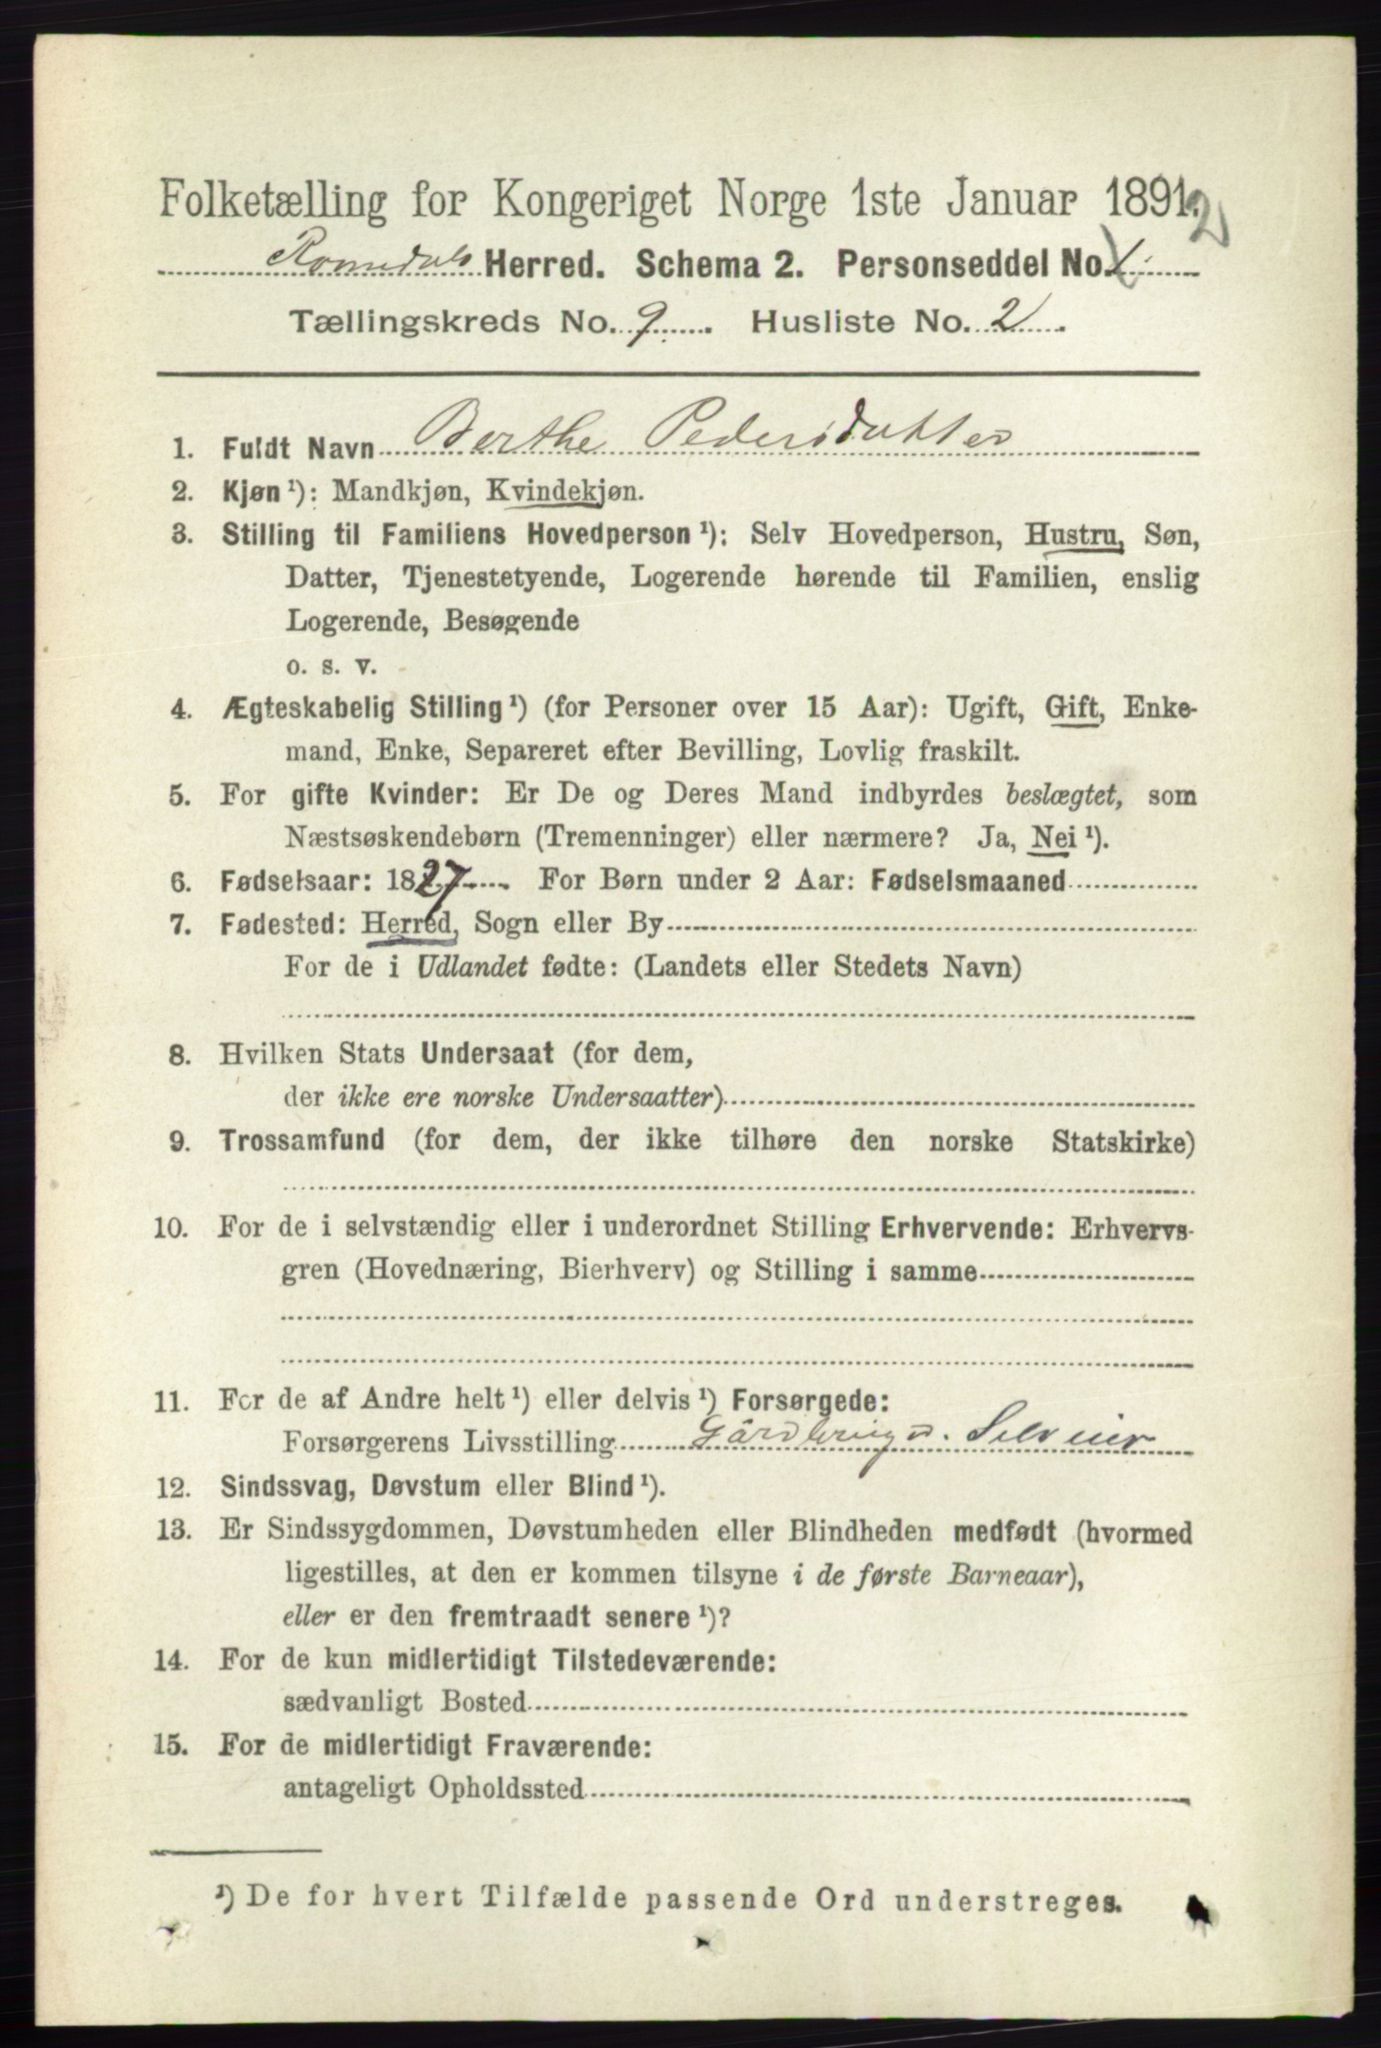 Folketælling for Kongeriget Norge 1ste Januar 1891.
2
Romedals Herred. Schema 2. Personseddel No. 1
Tællingskreds No. 9. Husliste No. 2.
1. Fuldt Navn Berthe Pedersdatter
2. Kjøn¹): Mandkjøn, Kvindekjøn.
3. Stilling til Familiens Hovedperson¹): Selv Hovedperson, Hustru, Søn,
Datter, Tjenestetyende, Logerende hørende til Familien, enslig
Logerende, Besøgende
o. s. v.
4. Ægteskabelig Stilling¹) (for Personer over 15 Aar): Ugift, Gift, Enke-
mand, Enke, Separeret efter Bevilling, Lovlig fraskilt.
5. For gifte Kvinder: Er De og Deres Mand indbyrdes beslægtet, som
Næstsøskendebørn (Tremenninger) eller nærmere? Ja, Nei¹).
6. Fødselsaar: 1827. For Børn under 2 Aar: Fødselsmaaned
7. Fødested: Herred, Sogn eller By
For de i Udlandet fødte: (Landets eller Stedets Navn)
8. Hvilken Stats Undersaat (for dem,
der ikke ere norske Undersaatter)
9. Trossamfund (for dem, der ikke tilhøre den norske Statskirke)
10. For de i selvstændig eller i underordnet Stilling Erhvervende: Erhvervs-
gren (Hovednæring, Bierhverv) og Stilling i samme
11. For de af Andre helt¹) eller delvis¹) Forsørgede:
Forsørgerens Livsstilling Gårdbrug. Selveier
12. Sindssvag, Døvstum eller Blind¹).
13. Er Sindssygdommen, Døvstumheden eller Blindheden medfødt (hvormed
ligestilles, at den er kommen tilsyne i de første Barneaar),
eller er den fremtraadt senere¹)?
14. For de kun midlertidigt Tilstedeværende:
sædvanligt Bosted
15. For de midlertidigt Fraværende:
antageligt Opholdssted
¹) De for hvert Tilfælde passende Ord understreges.